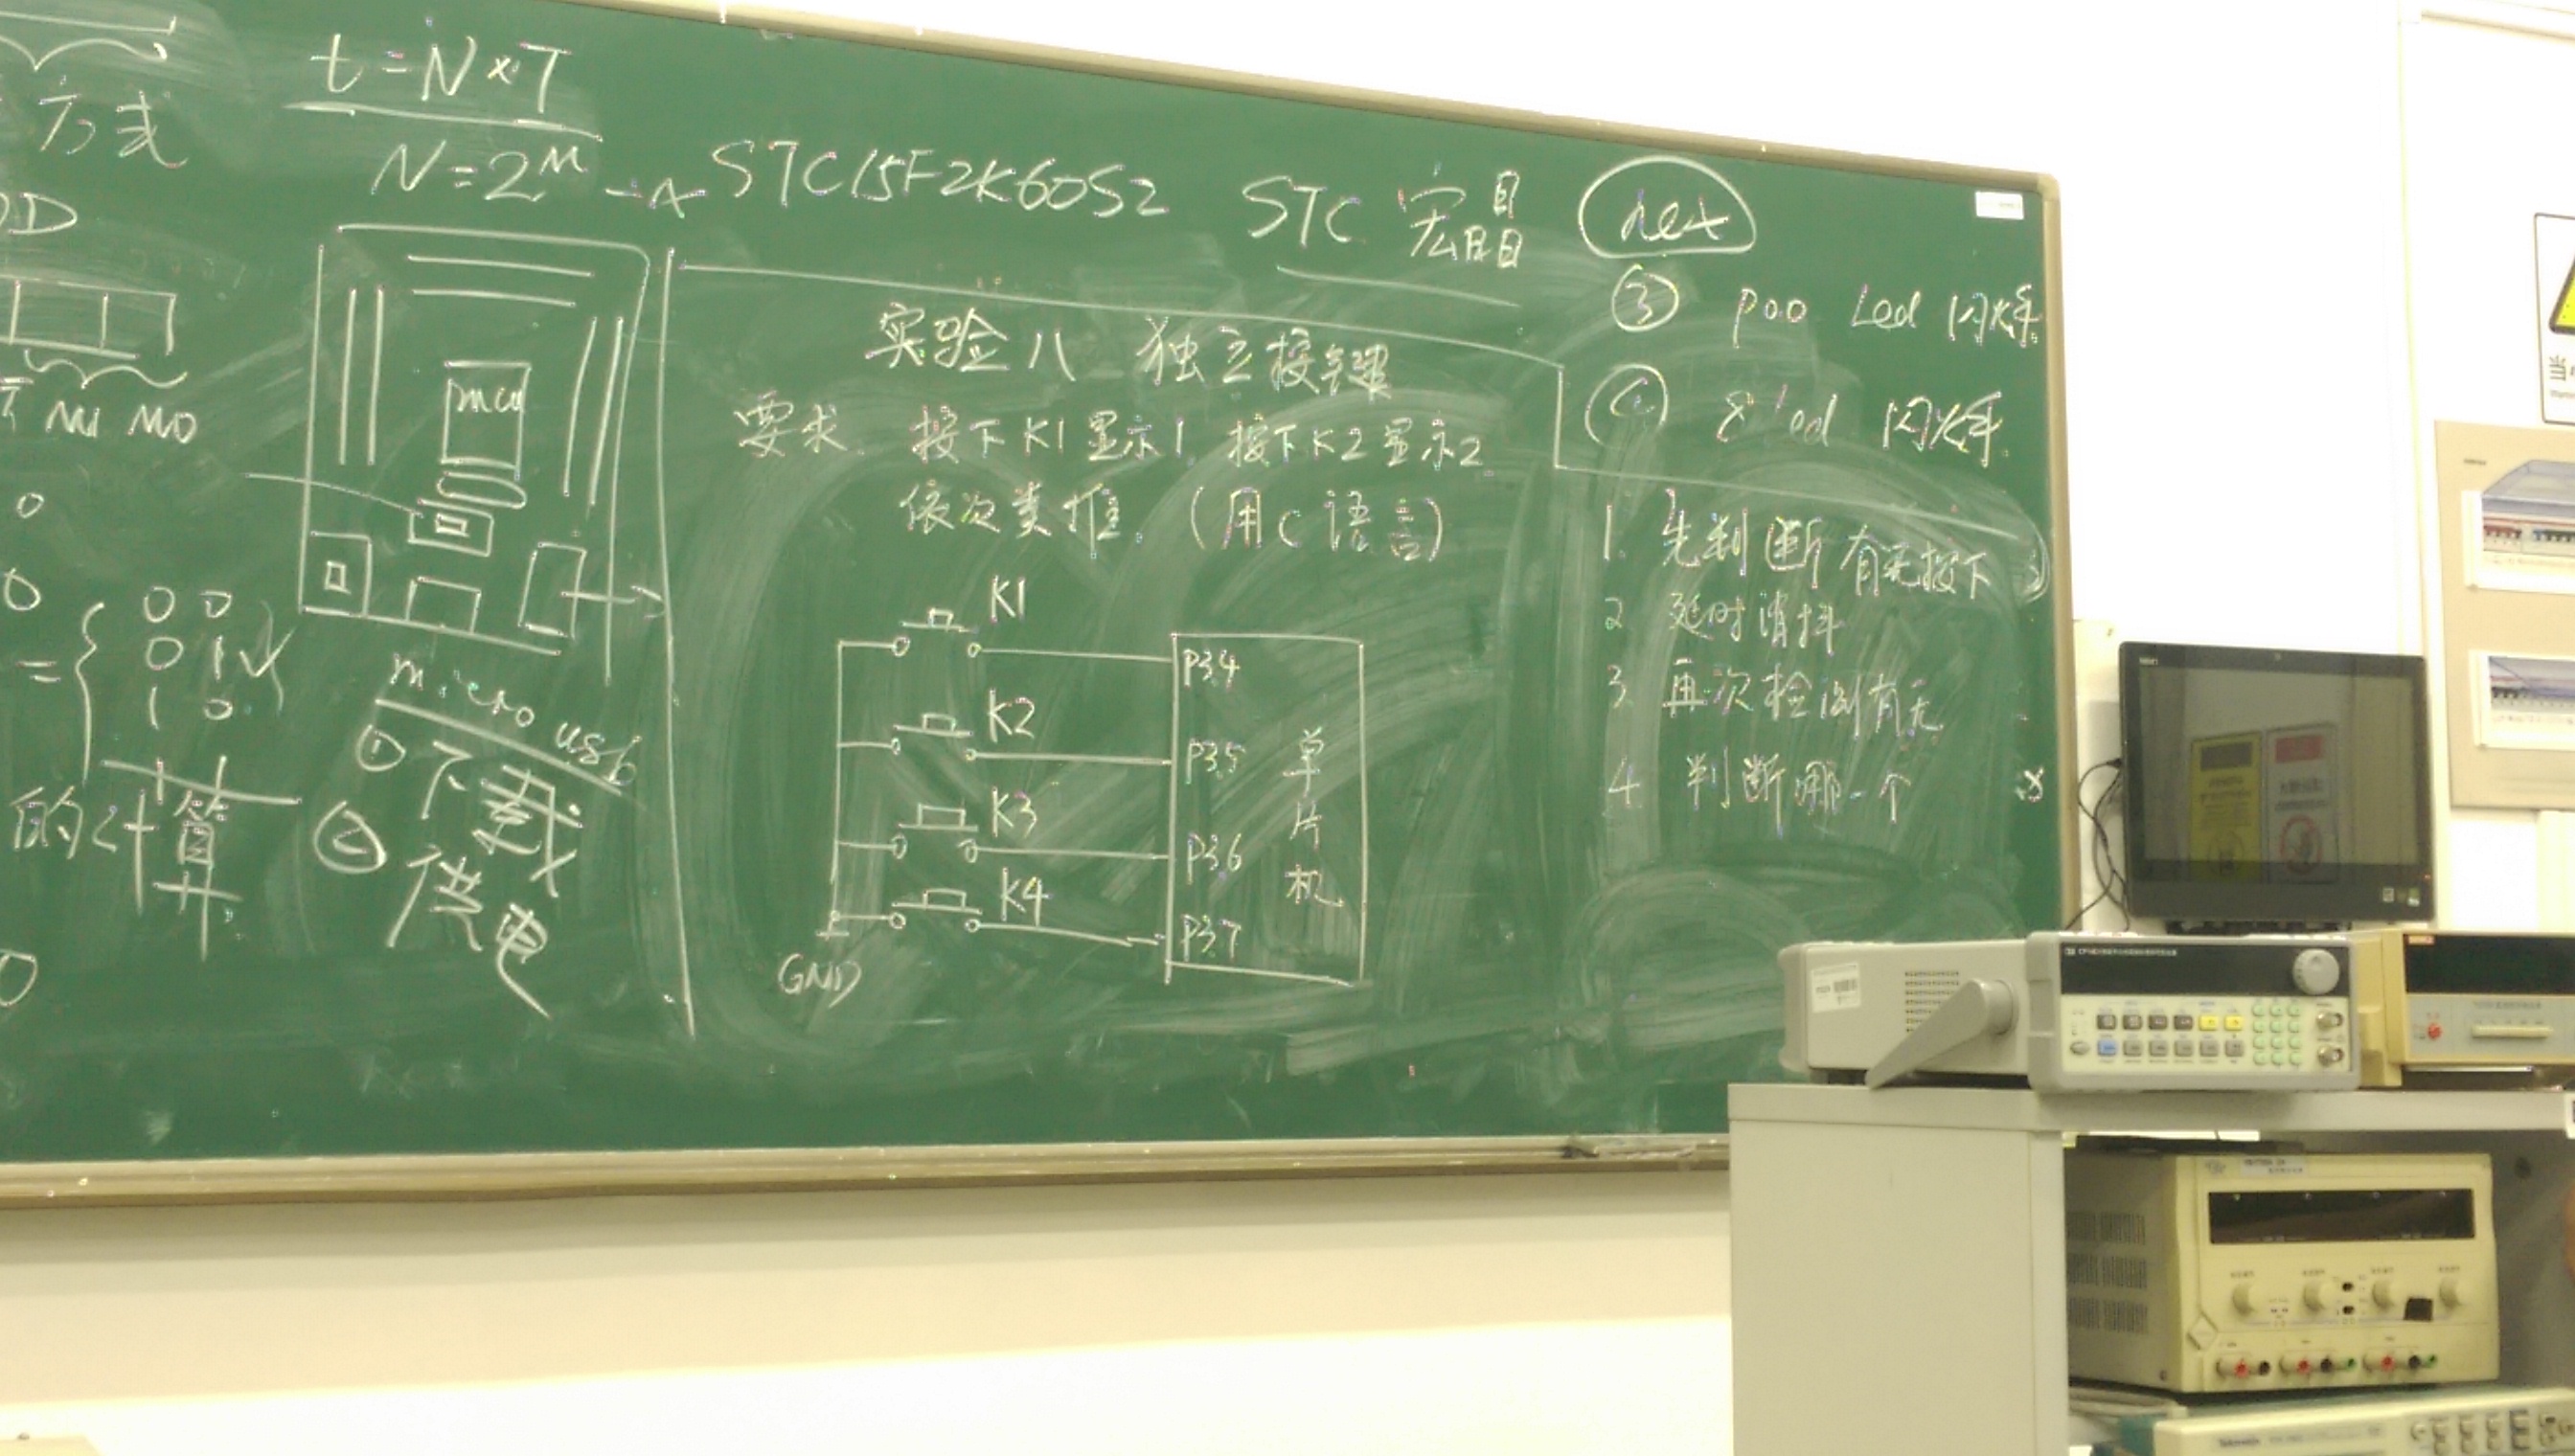 方式
t=N×T
N=2ᴹ
STC15F2K60S2
STC 宏晶
hex
M1 M0
0
0
= { 0 0
0 1 √
1 0
的计算
mcu
micro usb
① 下载
② 供电
实验八 独立按键
要求. 按下K1显示1. 按下K2显示2
依次类推. (用C语言)
K1
P3.4
K2
P3.5
K3
P3.6
K4
P3.7
GND
单片机
③ P0.0 Led 闪烁
④ 8 led 闪烁
1. 先判断有无按下
2 延时消抖
3 再次检测有无
4. 判断哪一个